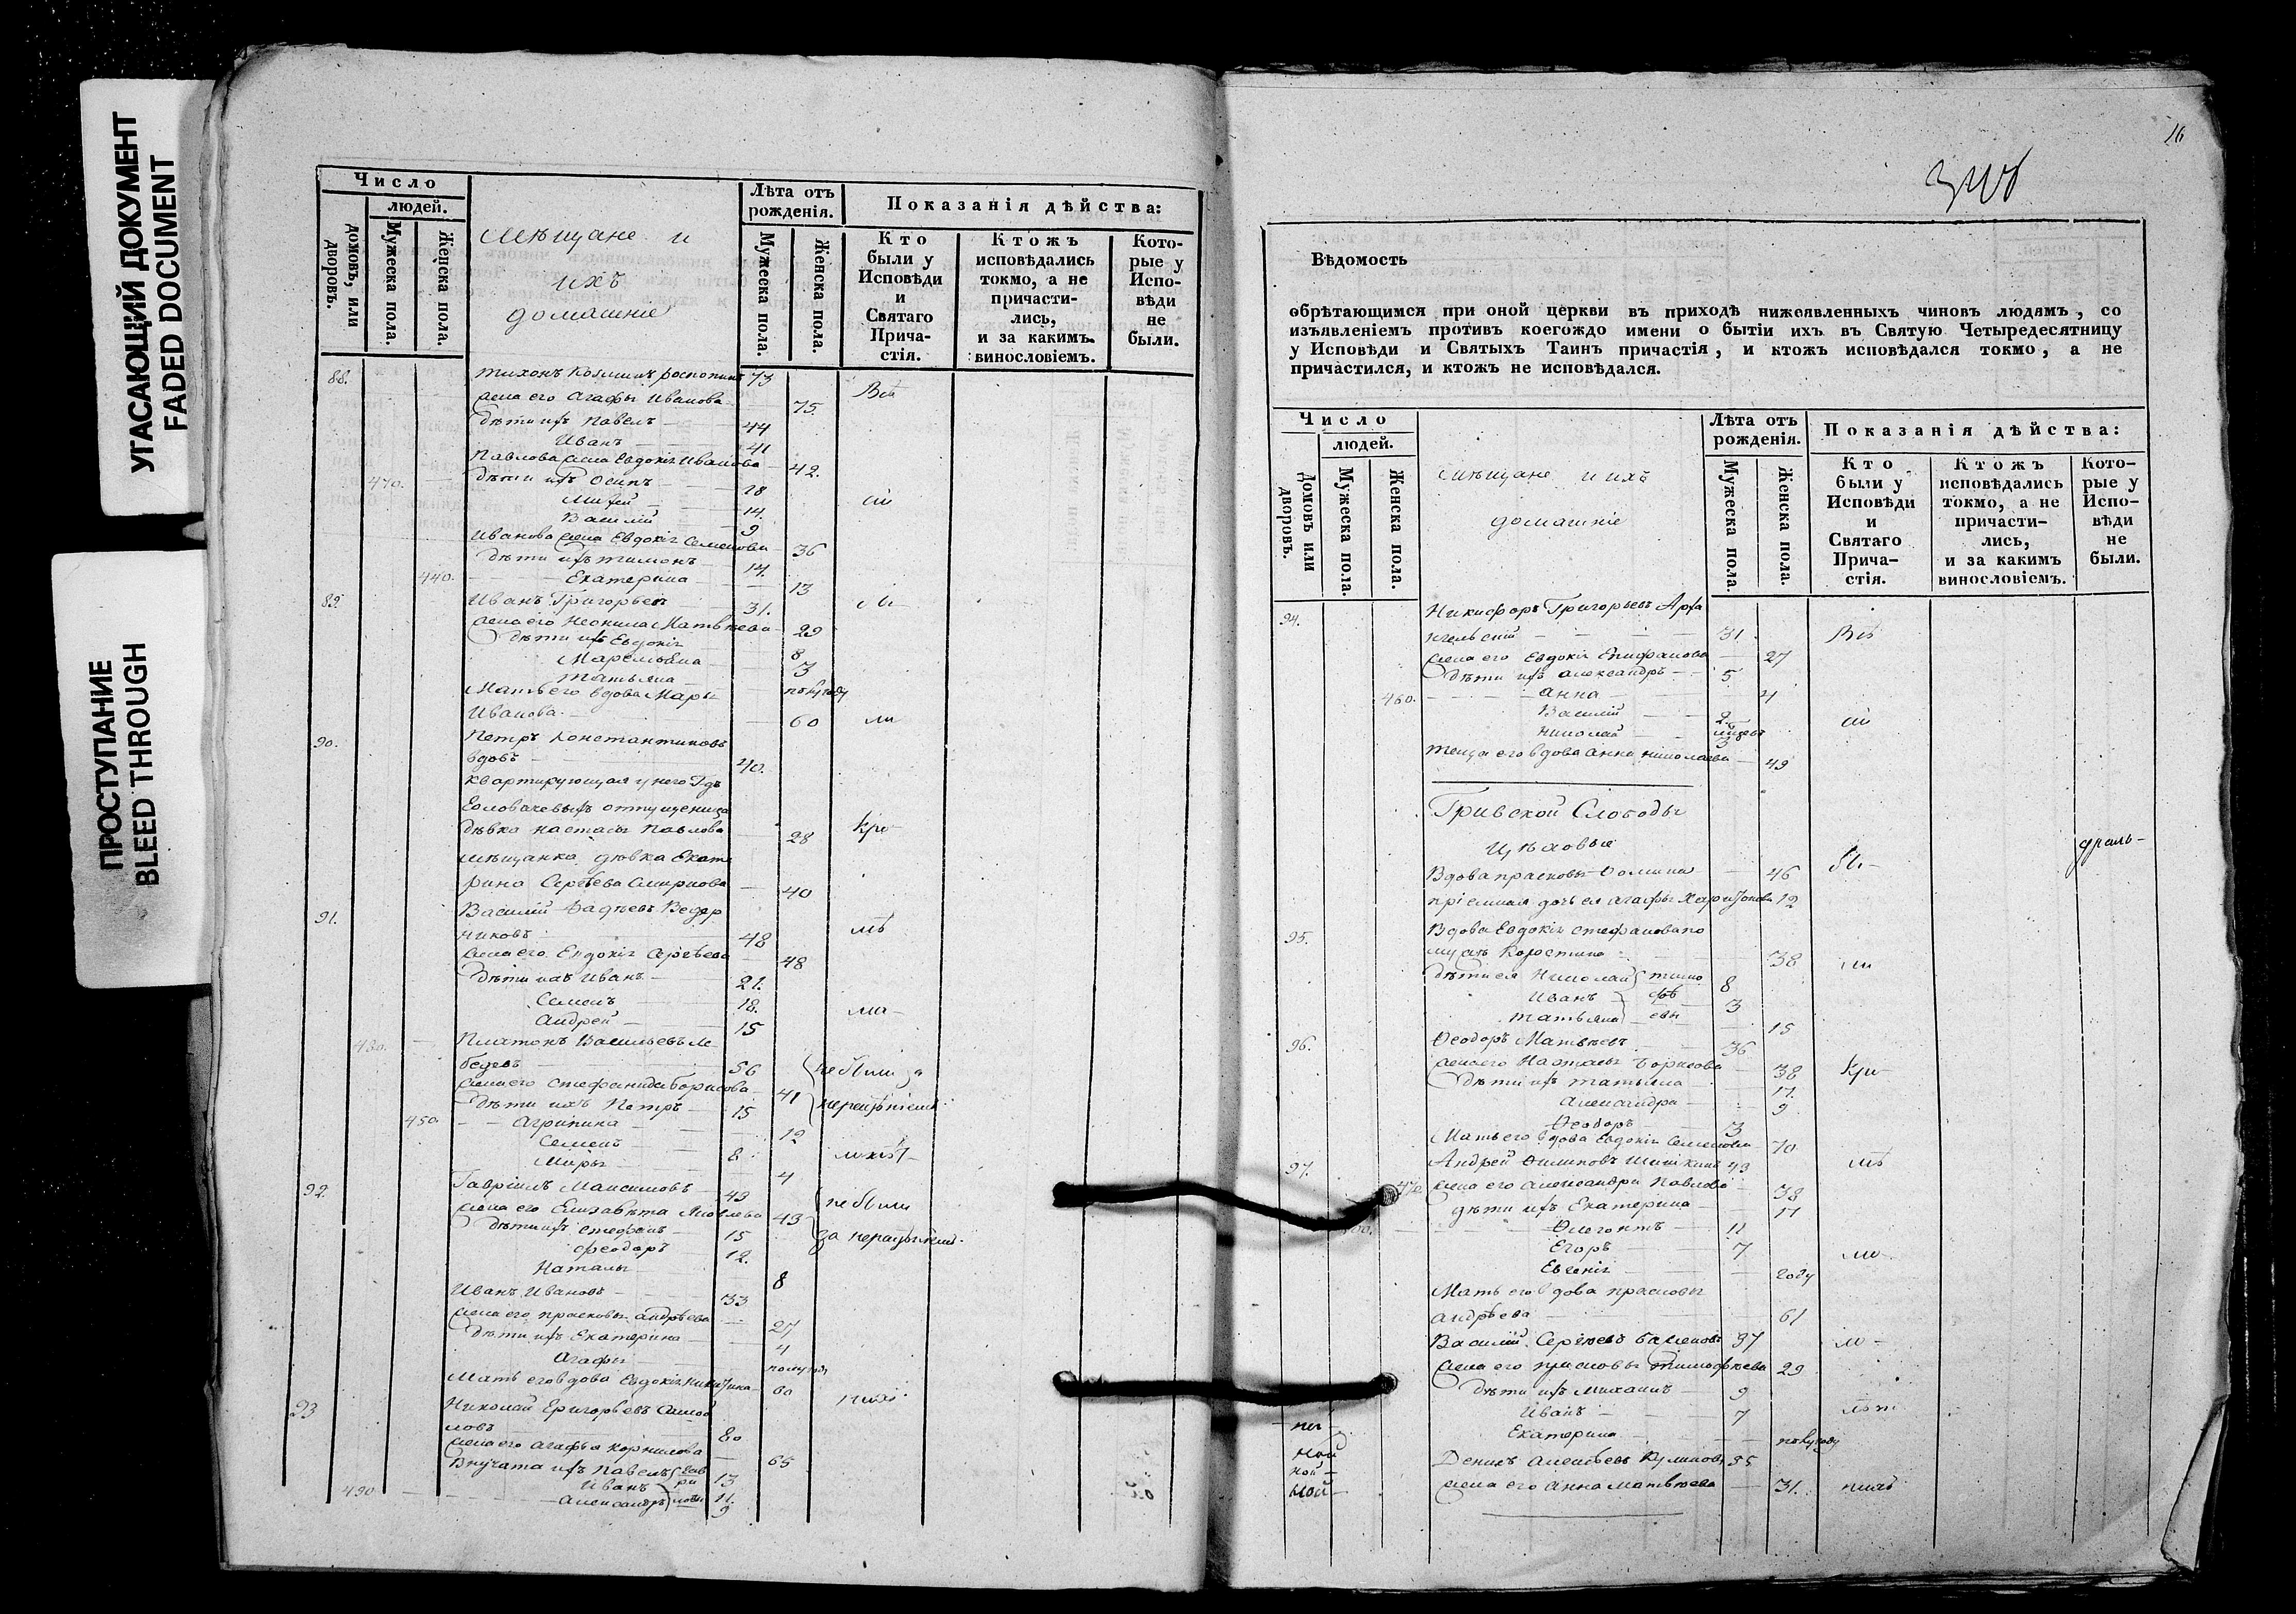 УГАСАЮЩИЙ ДОКУМЕНТ
FADED DOCUMENT
ПРОСТУПАНИЕ
BLEED THROUGH
Число
людей.
домовъ, или дворовъ.
Мужеска пола.
Женска пола.
Мѣщане и
ихъ
домашніе
Лѣта отъ рожденія.
Мужеска пола.
Женска пола.
Показанія дѣйства:
Кто были у Исповѣди и Святаго Прича- стія.
Ктожъ исповѣдались токмо, а не причасти- лись, и за какимъ винословіемъ.
Кото- рые у Испо- вѣди не были.
88. Тихонъ Козминъ 73
жена его Агафья Иванова 75.
дѣти ихъ Павелъ 44
Иванъ 41
Павлова жена Евдокія Иванова 42.
470. дѣти ихъ Осипъ 18
14.
Василій 9
Иванова жена Евдокія Семенова 36
дѣти ихъ 14.
440. Екатерина 13
89. Иванъ Григорьевъ 31.
жена его Неонила Матвѣева 29
дѣти ихъ Евдокія 8
3
Татьяна полугоду
Мать его вдова Марья
Иванова 60
90. Петръ Константиновъ
вдовъ 40.
квартирующая у него
дѣвка Настасья Павлова 28
мѣщанка дѣвка Екате
рина Сергѣева Смирнова 40
91. Василій Ѳадѣевъ Ведер
никовъ 48
жена его Евдокія Сергѣева 48
дѣти ихъ Иванъ 21.
Семенъ 18.
Андрей 15
480. Платонъ Васильевъ Ле
бедевъ 56 не были за
жена его Стефанида Борисова 41
дѣти ихъ Петръ 15
450. Агрипина 12
Семенъ 8
4
92. Гавріилъ Максимовъ 49 не были
жена его Елизавета Яковлева 43
дѣти ихъ Стефанъ 15 за
Феодоръ 12.
Наталья 8
Иванъ Ивановъ 33
жена его Прасковья Андрѣева 27
дѣти ихъ Екатерина 4
Агафья полугоду
Мать его вдова Евдокія Никитина 60
93 Николай Григорьевъ
ловъ 80
жена его Агафья Корнилова 65
Внучата ихъ Павелъ 13
Иванъ 11.
490 Александръ 9
16
Вѣдомость
обрѣтающимся при оной церкви въ приходѣ нижеявленныхъ чиновъ людямъ, со
изъявленіемъ противъ коегождо имени о бытіи ихъ въ Святую Четыредесятницу
у Исповѣди и Святыхъ Таинъ причастія, и ктожъ исповѣдался токмо, а не
причастился, и ктожъ не исповѣдался.
Число
людей.
Домовъ или дворовъ.
Мужеска пола.
Женска пола.
мѣщане и ихъ
домашніе
Лѣта отъ рожденія.
Мужеска пола.
Женска пола.
Показанія дѣйства:
Кто были у Исповѣди и Святаго Прича- стія.
Ктожъ исповѣдались токмо, а не причасти- лись, и за какимъ винословіемъ.
Кото- рые у Испо- вѣди не были.
94. Никифоръ Григорьевъ Арха
нгельскій 31
жена его Евдокія Епифанова 27
дѣти ихъ Александръ 5
460. Анна 4
Василій 2
Николай 3
теща его вдова Анна Николаева 49
Гривской Слободы
Цѣховые
Вдова Прасковья Ѳомина 46
пріемная дочь ея Агафья Харитонова 12
95. Вдова Евдокія Стефанова по
мужѣ Коростина 38
дѣти ея Николай 8
Иванъ 3
Татьяна 15
96. Ѳеодоръ Матвѣевъ 36
жена его Настасья Борисова 38
дѣти ихъ Татьяна 17.
Александра 9
Ѳеодоръ 3
Мать его вдова Евдокія Семенова 70
97. Андрей Филиповъ Шишкинъ 43
470 жена его Александра Павлова 38
дѣти ихъ Екатерина 17
500. Флегонтъ 11
Егоръ 7
Евгенія году
Мать его вдова Прасковья
Андрѣева 61
Василій Сергѣевъ 37
жена его Прасковья Тимофѣева 29
дѣти ихъ Михаилъ 9
Иванъ 7
Екатерина полугоду
Денисъ Алексѣевъ Куликовъ 35
жена его Анна Матвѣева 31.